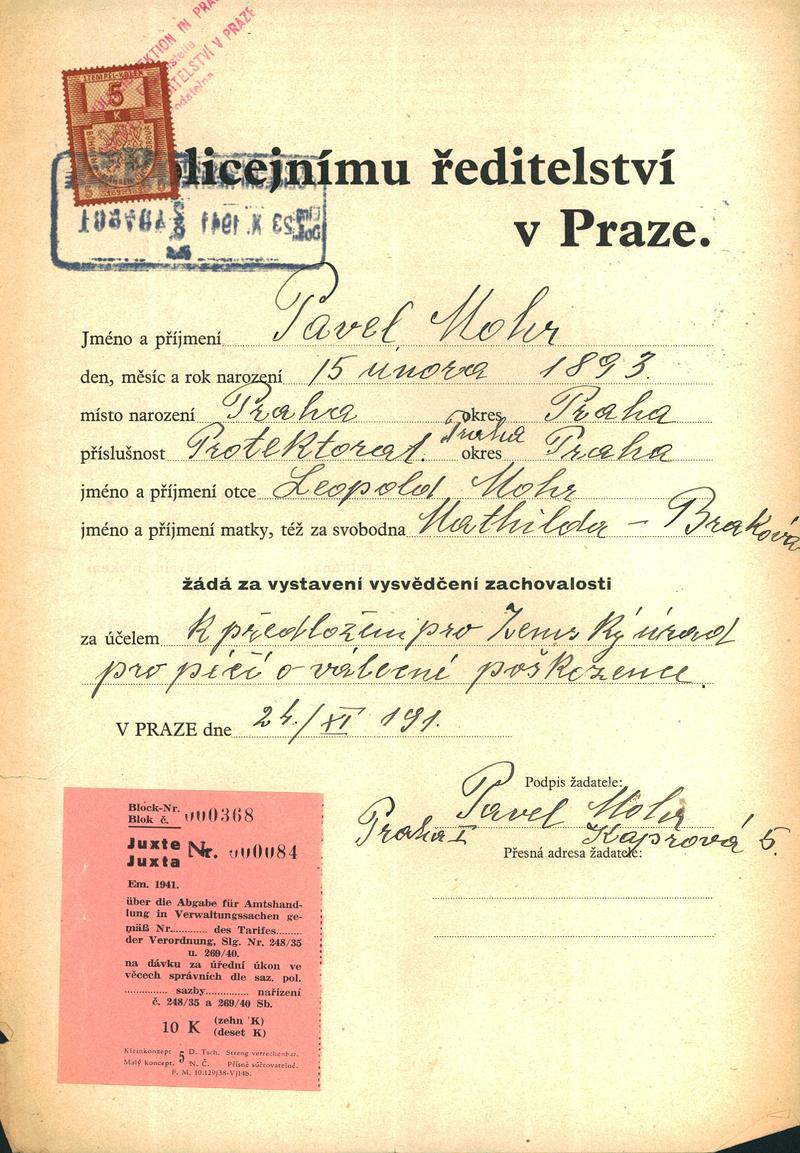 STEMPEL-KOLEK
5
K
Policejnímu ředitelství
v Praze.
23. X. 1941
Jméno a příjmení Pavel Mohr
den, měsíc a rok narození 15 února 1893.
místo narození Praha okres Praha
příslušnost Protektorat. Praha okres Praha
jméno a příjmení otce Leopold Mohr
jméno a příjmení matky, též za svobodna Mathilda – Braková
žádá za vystavení vysvědčení zachovalosti
za účelem k předložení pro Zemský úřad
pro péči o válečné poškozence.
V PRAZE dne 24./XI 191.
Podpis žadatele:
Pavel Mohr
Praha I Kaprová 5.
Přesná adresa žadatele:
Block-Nr.
Blok č. 000368
Juxte
Juxta Nr. 000084
Em. 1941.
über die Abgabe für Amtshand-
lung in Verwaltungssachen ge-
mäß Nr............ des Tarifes........
der Verordnung, Slg. Nr. 248/35
u. 269/40.
na dávku za úřední úkon ve
věcech správních dle saz. pol.
.................. sazby............ nařízení
č. 248/35 a 269/40 Sb.
10 K (zehn K)
(deset K)
Kleinkonzept 5 D. Tsch. Streng verrechenbar.
Malý koncept. N. Č. Přísně súčtovatelné.
F. M. 10.129/38-V/14b.